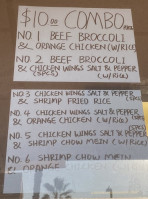 $10.00 COMBO
NO.1 BEEF BROCCOLI
& ORANGE CHICKEN (W/RICE)
NO.2 BEEF BROCCOLI
& CHICKEN WINGS SALT & PEPPER
(5PCS) (W/RICE)
NO.3 CHICKEN WINGS SALT & PEPPER
& SHRIMP FRIED RICE (5PCS)
NO.4 CHICKEN WINGS SALT & PEPPER
& ORANGE CHICKEN (W/RICE) (5PCS)
NO.5 CHICKEN WINGS SALT & PEPPER
& SHRIMP CHOW MEIN (W/RICE)
NO.6 SHRIMP CHOW MEIN
& ORANGE CHICKEN